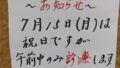 ～お知らせ～
7月15日(月)は
祝日ですが
午前中のみ診療します